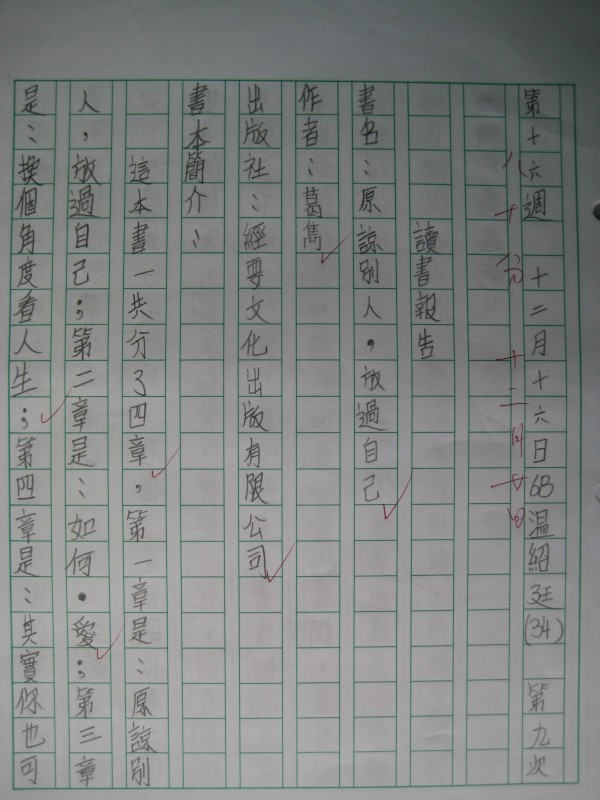 第十六週 十二月十六日6B温紹廷(34) 第九次
八十分 十二月廿日
讀書報告
書名：原諒別人，放過自己
作者：葛雋
出版社：經要文化出版有限公司
書本簡介：
這本書一共分了四章，第一章是：原諒別
人，放過自己；第二章是：如何·愛；第三章
是：換個角度看人生；第四章是：其實你也可